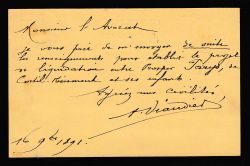 Monsieur l'Avocat
Je vous prie de m'envoyer de suite
les renseignements pour établir le projet
de liquidation entre Prosper
et ses enfants.
Agréez mes civilités
16 9bre 1891.